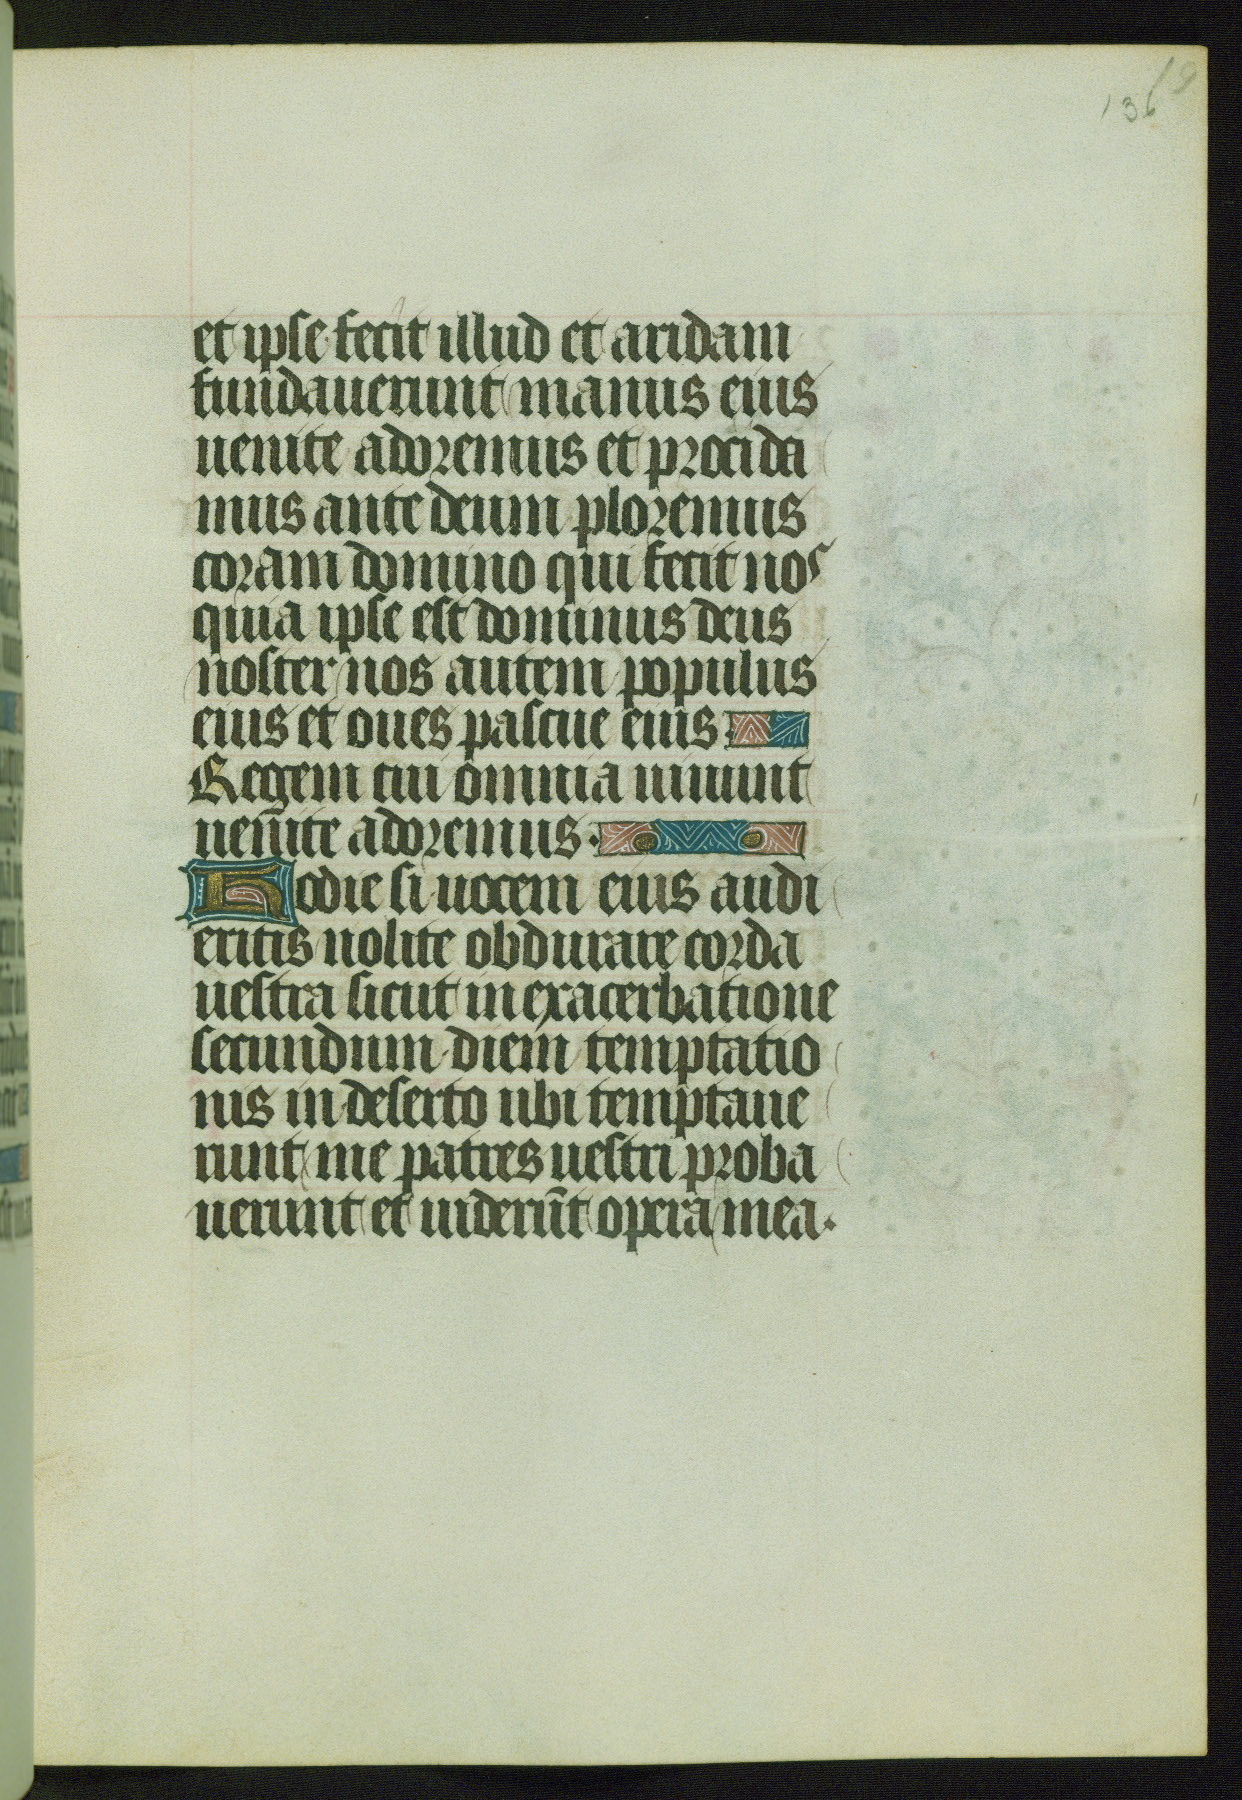 136
et ipse fecit illud et aridam
fundauerunt manus eius
uenite adoremus et procida
mus ante deum ploremus
coram domino qui fecit nos
quia ipse est dominus deus
noster nos autem populus
eius et oues pascue eius
Regem cui omnia uiuunt
uenite adoremus.
Hodie si uocem eius audi
eritis nolite obdurare corda
uestra sicut in exacerbatione
secundum diem temptatio
nis in deserto ubi temptaue
runt me patres uestri proba
uerunt et uiderūt opera mea.